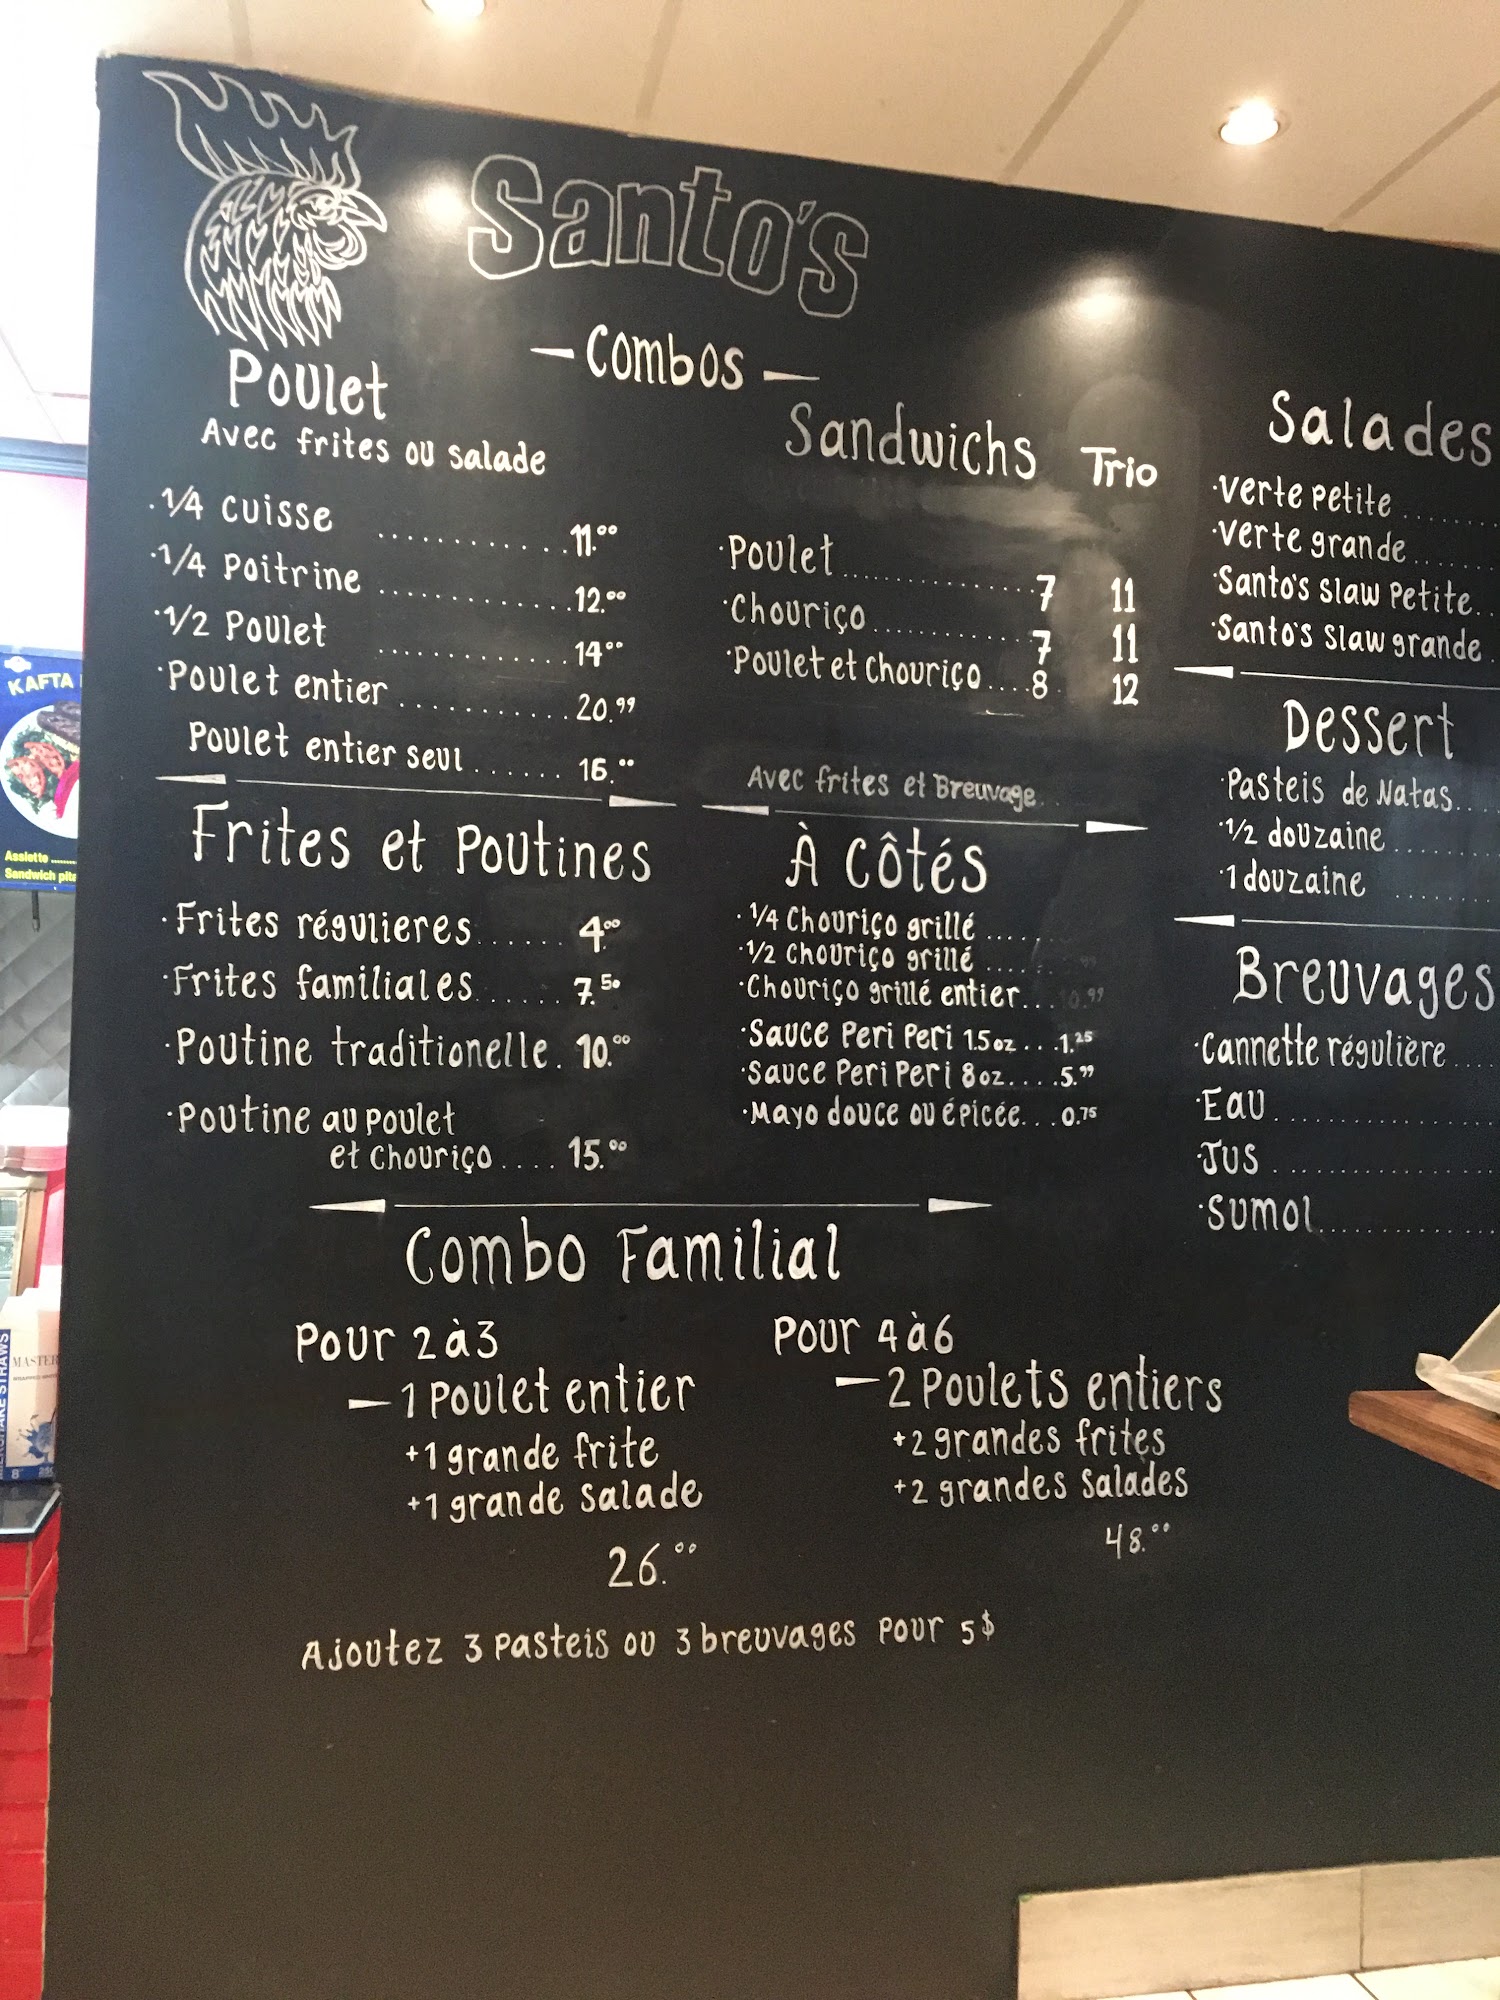 Santo's
- Combos -
Poulet
Avec frites ou salade
· 1/4 cuisse ............ 11.00
· 1/4 Poitrine ............ 12.00
· 1/2 Poulet ............ 14.00
· Poulet entier ........... 20.99
Poulet entier seul ...... 16.00
Sandwichs Trio
· Poulet ............... 7 11
· Chouriço ............ 7 11
· Poulet et Chouriço .... 8 12
Avec frites et Breuvage
Frites et Poutines
· Frites régulieres ...... 4.00
· Frites familiales ...... 7.50
· Poutine traditionelle . 10.00
· Poutine au poulet
et Chouriço .... 15.00
À côtés
· 1/4 Chouriço grillé ....
· 1/2 Chouriço grillé ....
· Chouriço grillé entier...10.99
· Sauce Peri Peri 1.5oz...1.25
· Sauce Peri Peri 8oz....5.99
· Mayo douce ou épicée...0.75
Salades
· Verte Petite
· Verte grande
· Santo's Slaw Petite
· Santo's Slaw grande
Dessert
· Pasteis de Natas
· 1/2 douzaine
· 1 douzaine
Breuvages
· Cannette régulière
· Eau
· Jus
· Sumol
Combo Familial
Pour 2 à 3
- 1 Poulet entier
+ 1 grande frite
+ 1 grande salade
26.00
Pour 4 à 6
- 2 Poulets entiers
+ 2 grandes frites
+ 2 grandes salades
48.00
Ajoutez 3 pasteis ou 3 breuvages pour 5$
KAFTA
Assiette
Sandwich pita
MILKSHAKE STRAWS
MASTER
8"